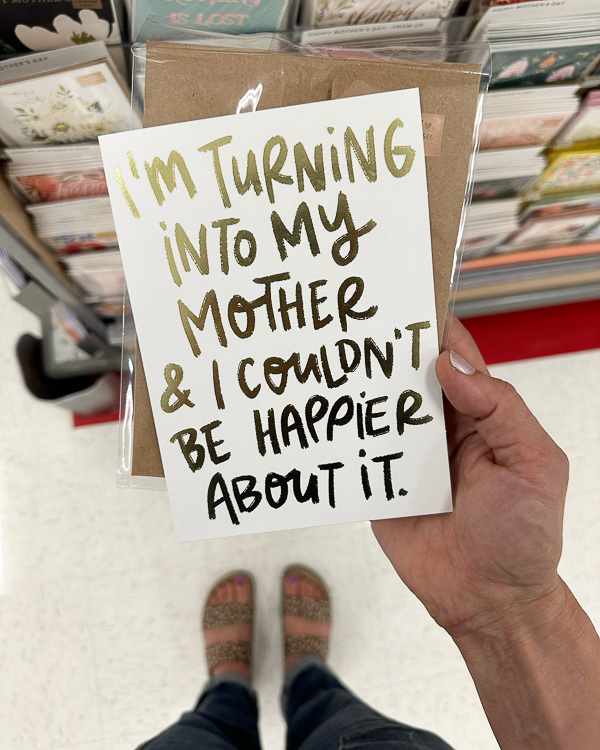 IS LOST
MOTHER'S DAY
I'M TURNING
INTO MY
MOTHER
& I COULDN'T
BE HAPPIER
ABOUT IT.